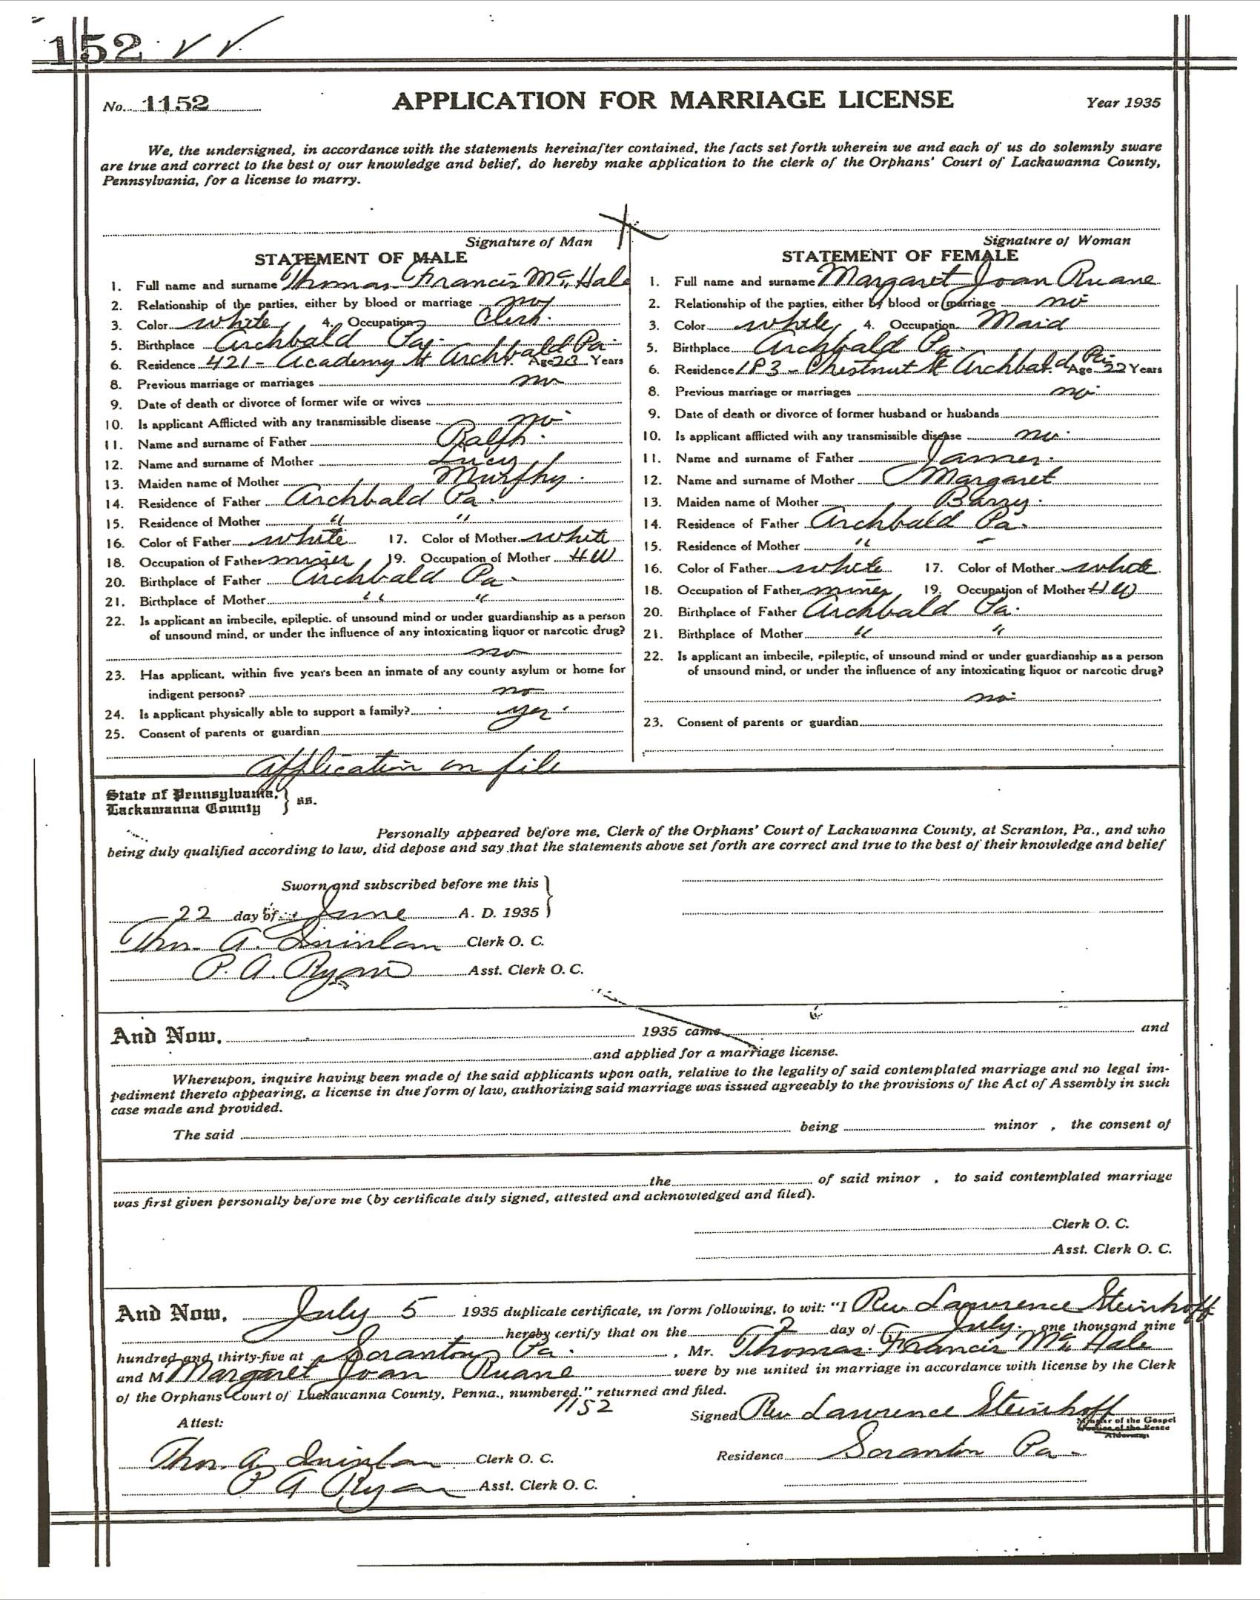 152 ✓ ✓
No. 1152 APPLICATION FOR MARRIAGE LICENSE Year 1935
We, the undersigned, in accordance with the statements hereinafter contained, the facts set forth wherein we and each of us do solemnly sware
are true and correct to the best of our knowledge and belief, do hereby make application to the clerk of the Orphans' Court of Lackawanna County,
Pennsylvania, for a license to marry.
Signature of Man
STATEMENT OF MALE
1. Full name and surname Thomas Francis Mc Hale
2. Relationship of the parties, either by blood or marriage no
3. Color white 4. Occupation Clerk
5. Birthplace Archbald Pa.
6. Residence 421 - Academy St Archbald Pa. Age 23 Years
8. Previous marriage or marriages no
9. Date of death or divorce of former wife or wives
10. Is applicant Afflicted with any transmissible disease no
11. Name and surname of Father Ralph
12. Name and surname of Mother Lucy
13. Maiden name of Mother Murphy
14. Residence of Father Archbald Pa.
15. Residence of Mother " "
16. Color of Father white 17. Color of Mother white
18. Occupation of Father miner 19. Occupation of Mother HW
20. Birthplace of Father Archbald Pa.
21. Birthplace of Mother " "
22. Is applicant an imbecile, epileptic, of unsound mind or under guardianship as a person
of unsound mind, or under the influence of any intoxicating liquor or narcotic drug?
no
23. Has applicant, within five years been an inmate of any county asylum or home for
indigent persons? no
24. Is applicant physically able to support a family? yes
25. Consent of parents or guardian
Application on file
Signature of Woman
STATEMENT OF FEMALE
1. Full name and surname Margaret Joan Ruane
2. Relationship of the parties, either by blood or marriage no
3. Color white 4. Occupation Maid
5. Birthplace Archbald Pa.
6. Residence 183 - Chestnut St Archbald Pa Age 22 Years
8. Previous marriage or marriages no
9. Date of death or divorce of former husband or husbands
10. Is applicant afflicted with any transmissible disease no
11. Name and surname of Father James
12. Name and surname of Mother Margaret
13. Maiden name of Mother Barry
14. Residence of Father Archbald Pa.
15. Residence of Mother " "
16. Color of Father white 17. Color of Mother white
18. Occupation of Father miner 19. Occupation of Mother HW
20. Birthplace of Father Archbald Pa.
21. Birthplace of Mother " "
22. Is applicant an imbecile, epileptic, of unsound mind or under guardianship as a person
of unsound mind, or under the influence of any intoxicating liquor or narcotic drug?
no
23. Consent of parents or guardian
State of Pennsylvania,
Lackawanna County } ss.
Personally appeared before me, Clerk of the Orphans' Court of Lackawanna County, at Scranton, Pa., and who
being duly qualified according to law, did depose and say that the statements above set forth are correct and true to the best of their knowledge and belief
Sworn and subscribed before me this
22 day of June A. D. 1935
Thos. A. Quinlan Clerk O. C.
P. A. Ryan Asst. Clerk O. C.
And Now, 1935 came and
and applied for a marriage license.
Whereupon, inquire having been made of the said applicants upon oath, relative to the legality of said contemplated marriage and no legal im-
pediment thereto appearing, a license in due form of law, authorizing said marriage was issued agreeably to the provisions of the Act of Assembly in such
case made and provided.
The said being minor , the consent of
the of said minor , to said contemplated marriage
was first given personally before me (by certificate duly signed, attested and acknowledged and filed).
Clerk O. C.
Asst. Clerk O. C.
And Now, July 5 1935 duplicate certificate, in form following, to wit: "I Rev Lawrence Steinhoff
hereby certify that on the 2 day of July one thousand nine
hundred and thirty-five at Scranton Pa. , Mr. Thomas Francis Mc Hale
and M Margaret Joan Ruane were by me united in marriage in accordance with license by the Clerk
of the Orphans' Court of Lackawanna County, Penna., numbered." returned and filed.
1152
Attest: Signed Rev Lawrence Steinhoff
Minister of the Gospel
Justice of the Peace
Alderman
Thos. A. Quinlan Clerk O. C. Residence Scranton Pa.
P A Ryan Asst. Clerk O. C.